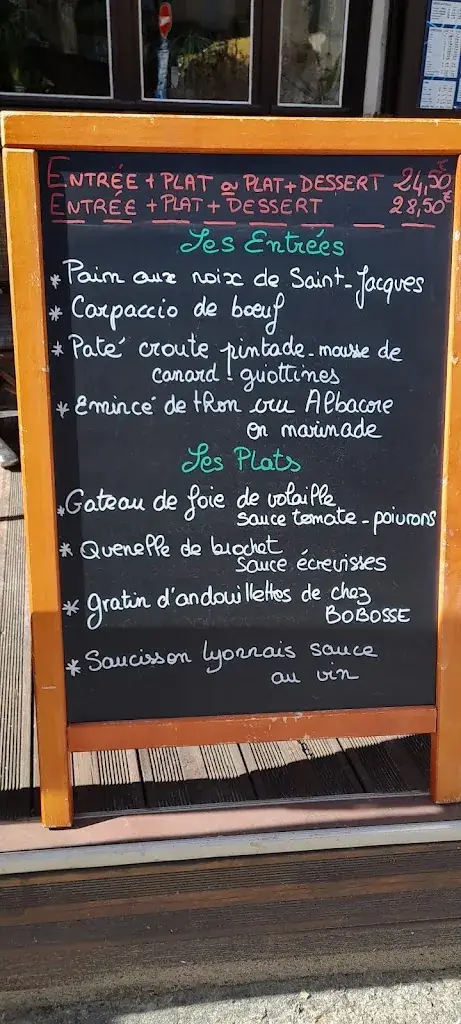 ENTRÉE + PLAT ou PLAT + DESSERT 24,50€
ENTRÉE + PLAT + DESSERT 28,50€
Les Entrées
* Pain aux noix de Saint-Jacques
* Carpaccio de bœuf
* Paté croute pintade - mousse de
canard - guiottines
* Emincé de thon cru Albacore
en marinade
Les Plats
* Gateau de foie de volaille
sauce tomate - poivrons
* Quenelle de brochet
sauce écrevisses
* gratin d'andouillettes de chez
BOBOSSE
* Saucisson lyonnais sauce
au vin